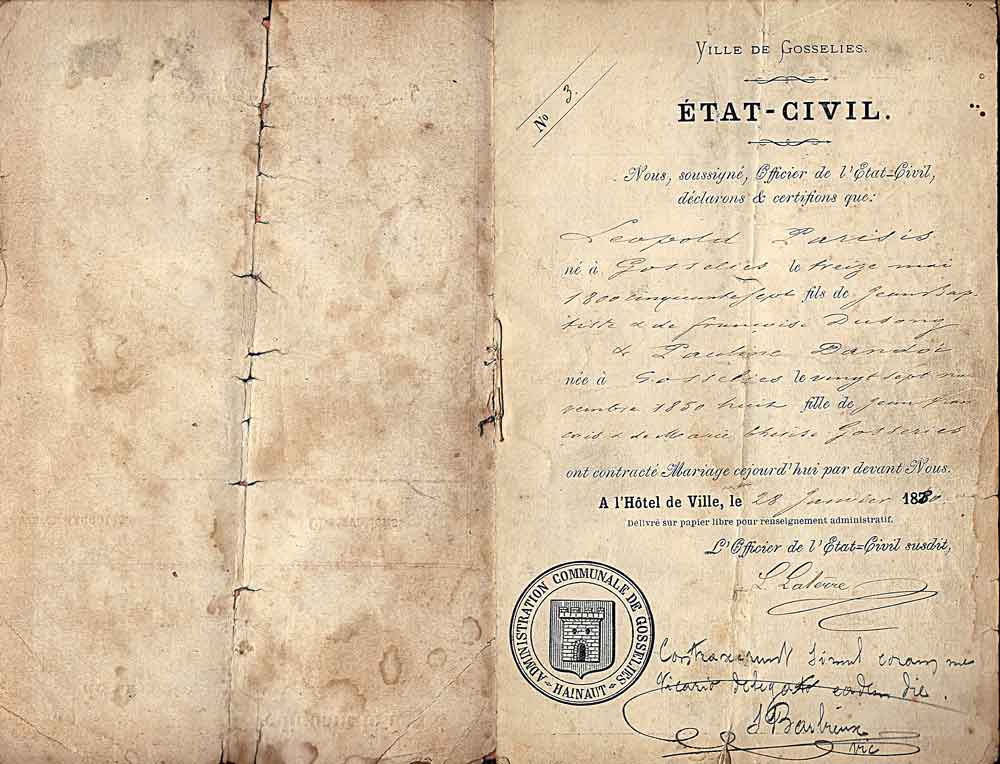 VILLE DE GOSSELIES.
No 3.
ÉTAT-CIVIL.
Nous, soussigné, Officier de l'État-Civil,
déclarons & certifions que:
Leopold Parisis
né à Gosselies le treize mai
1800 cinquante sept fils de Jean Bap
tiste & de francoise Dusong
& Pauline Dandoi
née à Gosselies le vingt sept no
vembre 1850 huit fille de Jean fran
cois & de Marie therese Gosseries
ont contracté Mariage cejourd'hui par devant Nous.
A l'Hôtel de Ville, le 28 Janvier 1880
Délivré sur papier libre pour renseignement administratif.
L'Officier de l'État-Civil susdit,
L. Lalieve
ADMINISTRATION COMMUNALE DE GOSSELIES
HAINAUT
Contraxerunt simul coram me
Vicario delegato eadem die.
J Barbieux
vic